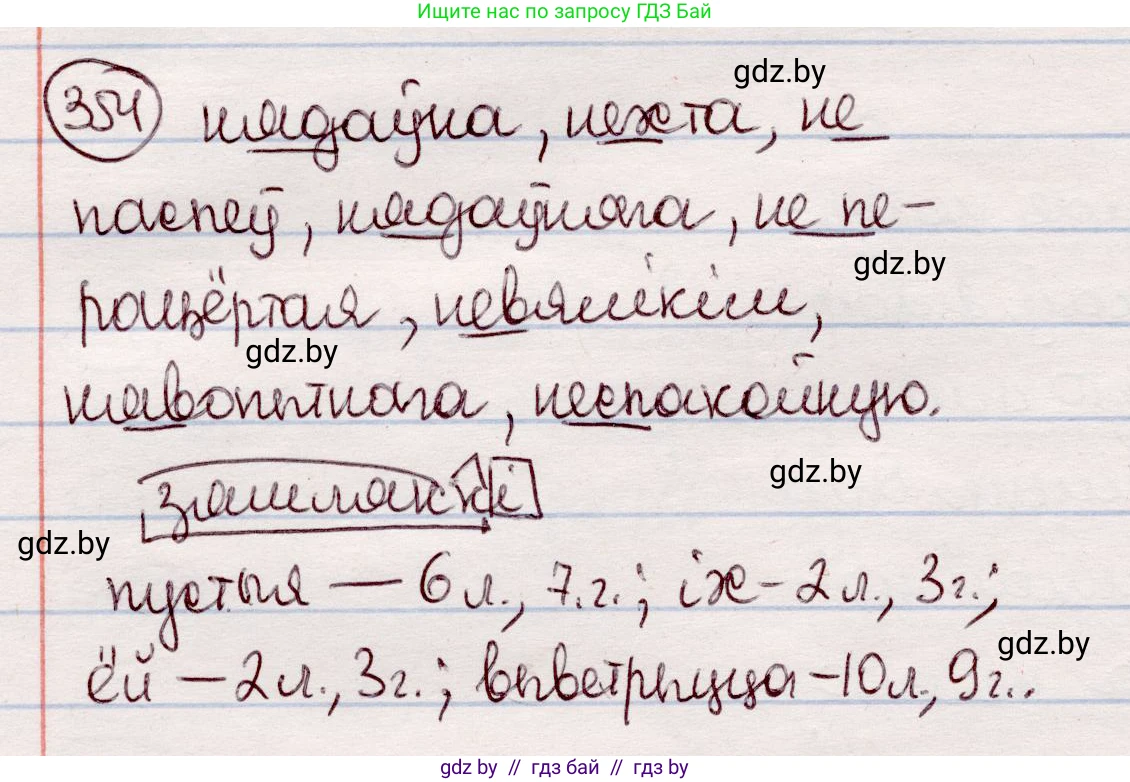 Ищите нас по запросу ГДЗ Бай
gdz.by
354 нядаўна, нехта, не
паспеў, нядаўняга, не пе-
gdz.by
рацёртая, невялікім,
gdz.by
нявопытнага, неспакойную.
gdz.by
замлякі
gdz.by
пустыя — 6 л., 7.г.; іх - 2 л., 3 г.;
gdz.by
ёй — 2 л., 3 г.; выветрыцца - 10 л., 9 г..
gdz by // гдз бай // гдз by